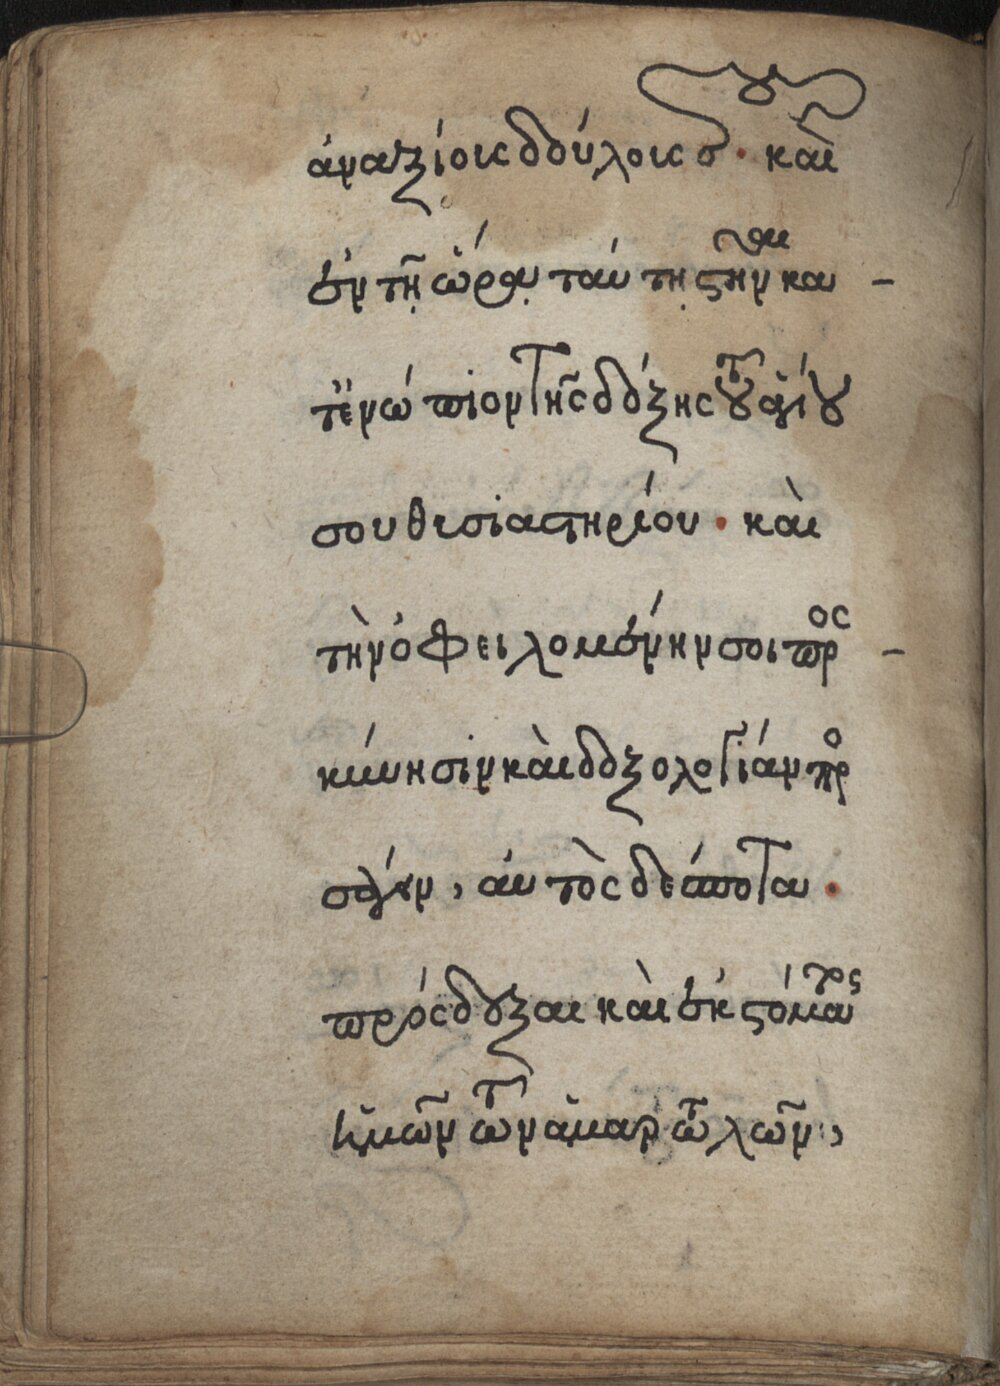 ἀναξίοις δούλοις σου · καὶ
ἐν τῇ ὥρᾳ ταύτῃ στῆναι κα –
τενώπιον τῆς δόξης τοῦ ἁγίου
σου θυσιαστηρίου · καὶ
τὴν ὀφειλομένην σοι προσ –
κύνησιν καὶ δοξολογίαν προ
σάγειν, αὐτὸς δέσποτα ·
πρόσδεξαι καὶ ἐκ στόματος
ἡμῶν τῶν ἁμαρτωλῶν,